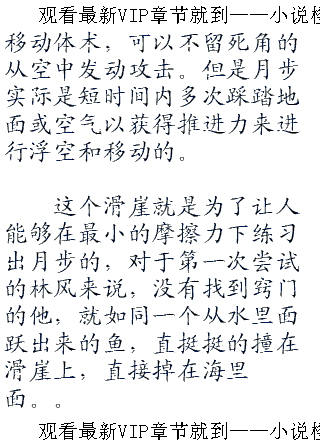 观看最新VIP章节就到——小说
移动体术，可以不留死角的
从空中发动攻击。但是月步
实际是短时间内多次踩踏地
面或空气以获得推进力来进
行浮空和移动的。
这个滑崖就是为了让人
能够在最小的摩擦力下练习
出月步的，对于第一次尝试
的林风来说，没有找到窍门
的他，就如同一个从水里面
跃出来的鱼，直挺挺的撞在
滑崖上，直接掉在海里
面。。
观看最新VIP章节就到——小说